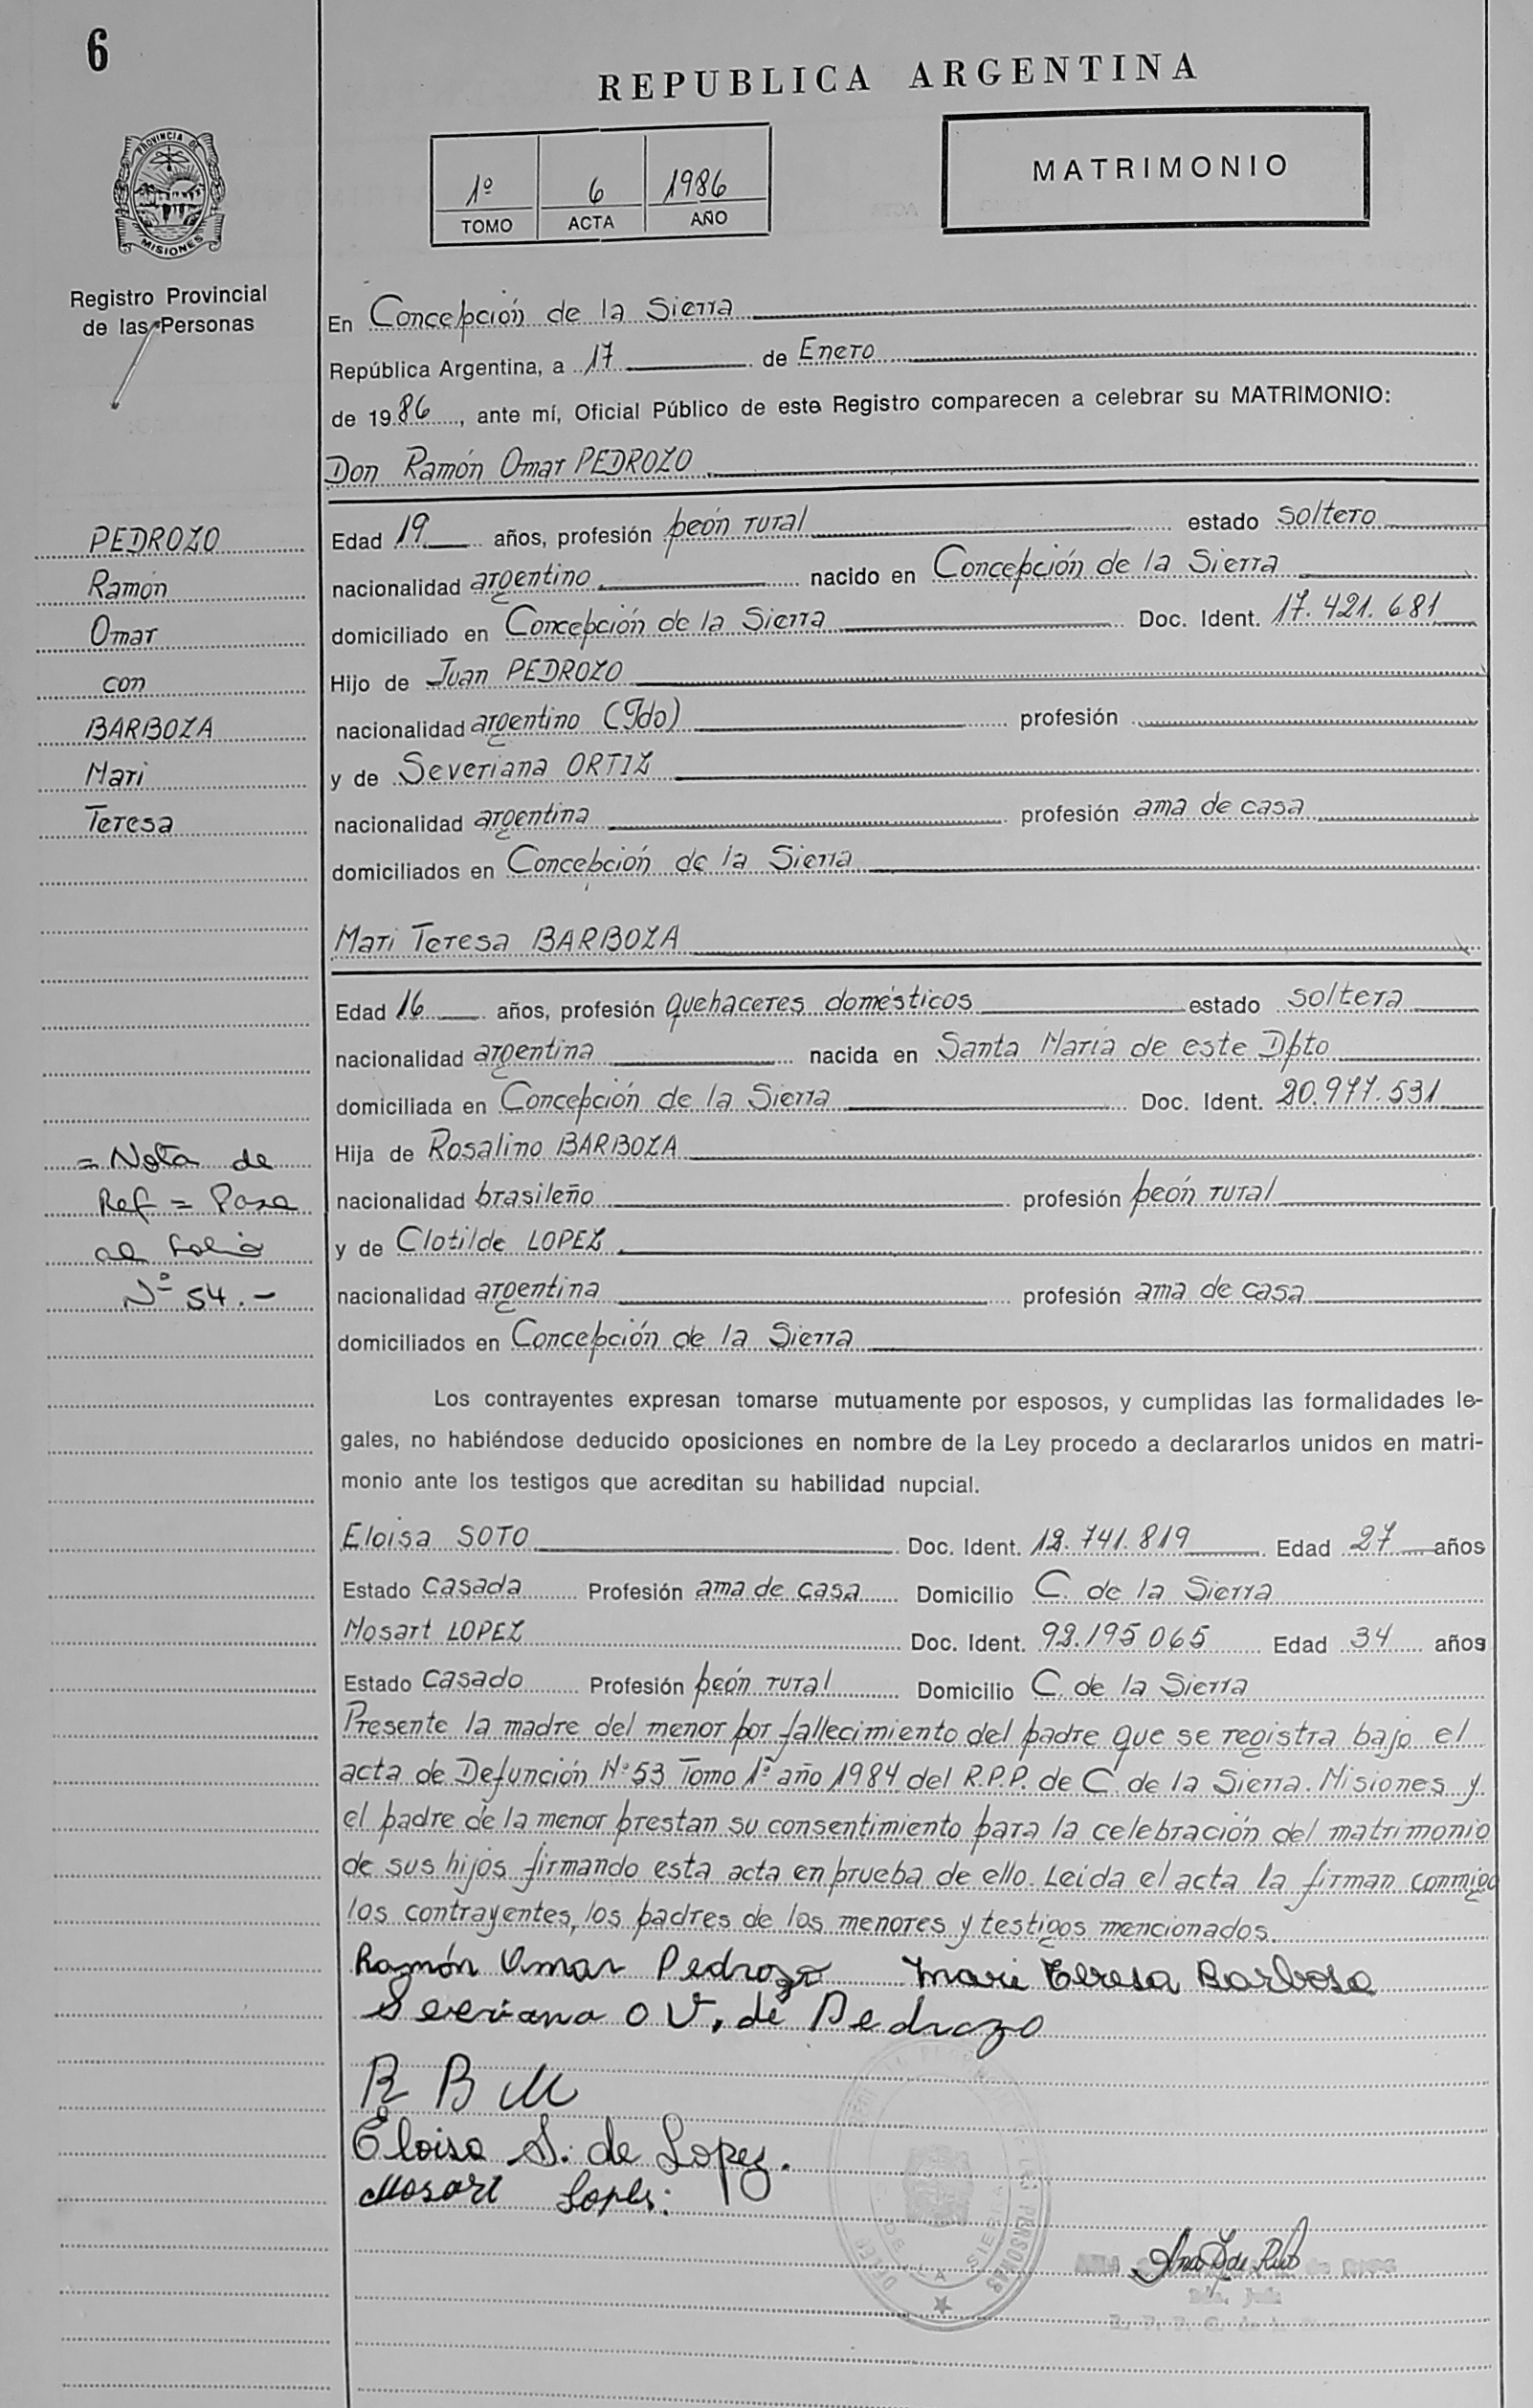 6
REPUBLICA ARGENTINA
PROVINCIA DE
MISIONES
Registro Provincial
de las Personas
1º 6 1986
TOMO ACTA AÑO
MATRIMONIO
En Concepción de la Sierra
República Argentina, a 17 de Enero
de 1986, ante mí, Oficial Público de este Registro comparecen a celebrar su MATRIMONIO:
Don Ramón Omar PEDROZO
PEDROZO
Ramón
Omar
con
BARBOZA
Mari
Teresa
Edad 19 años, profesión peón rural estado soltero
nacionalidad argentino nacido en Concepción de la Sierra
domiciliado en Concepción de la Sierra Doc. Ident. 17.421.681
Hijo de Juan PEDROZO
nacionalidad argentino (Fdo) profesión
y de Severiana ORTIZ
nacionalidad argentina profesión ama de casa
domiciliados en Concepción de la Sierra
Mari Teresa BARBOZA
Edad 16 años, profesión quehaceres domésticos estado soltera
nacionalidad argentina nacida en Santa María de este Dpto
domiciliada en Concepción de la Sierra Doc. Ident. 20.977.531
Hija de Rosalino BARBOZA
nacionalidad brasileño profesión peón rural
y de Clotilde LOPEZ
nacionalidad argentina profesión ama de casa
domiciliados en Concepción de la Sierra
= Nota de
Ref = Pasa
al folio
Nº 54.-
Los contrayentes expresan tomarse mutuamente por esposos, y cumplidas las formalidades le-
gales, no habiéndose deducido oposiciones en nombre de la Ley procedo a declararlos unidos en matri-
monio ante los testigos que acreditan su habilidad nupcial.
Eloisa SOTO Doc. Ident. 12.741.819 Edad 27 años
Estado casada Profesión ama de casa Domicilio C. de la Sierra
Mosart LOPEZ Doc. Ident. 92.195.065 Edad 34 años
Estado casado Profesión peón rural Domicilio C. de la Sierra
Presente la madre del menor por fallecimiento del padre que se registra bajo el
acta de Defunción Nº 53 Tomo 1º año 1984 del R.P.P. de C. de la Sierra. Misiones y
el padre de la menor prestan su consentimiento para la celebración del matrimonio
de sus hijos firmando esta acta en prueba de ello. Leida el acta la firman conmigo
los contrayentes, los padres de los menores y testigos mencionados.
Ramón Omar Pedrozo Mari Teresa Barbosa
Severiana O V. de Pedrozo
R B M
Eloisa S. de Lopez.
Mosart Lopes.